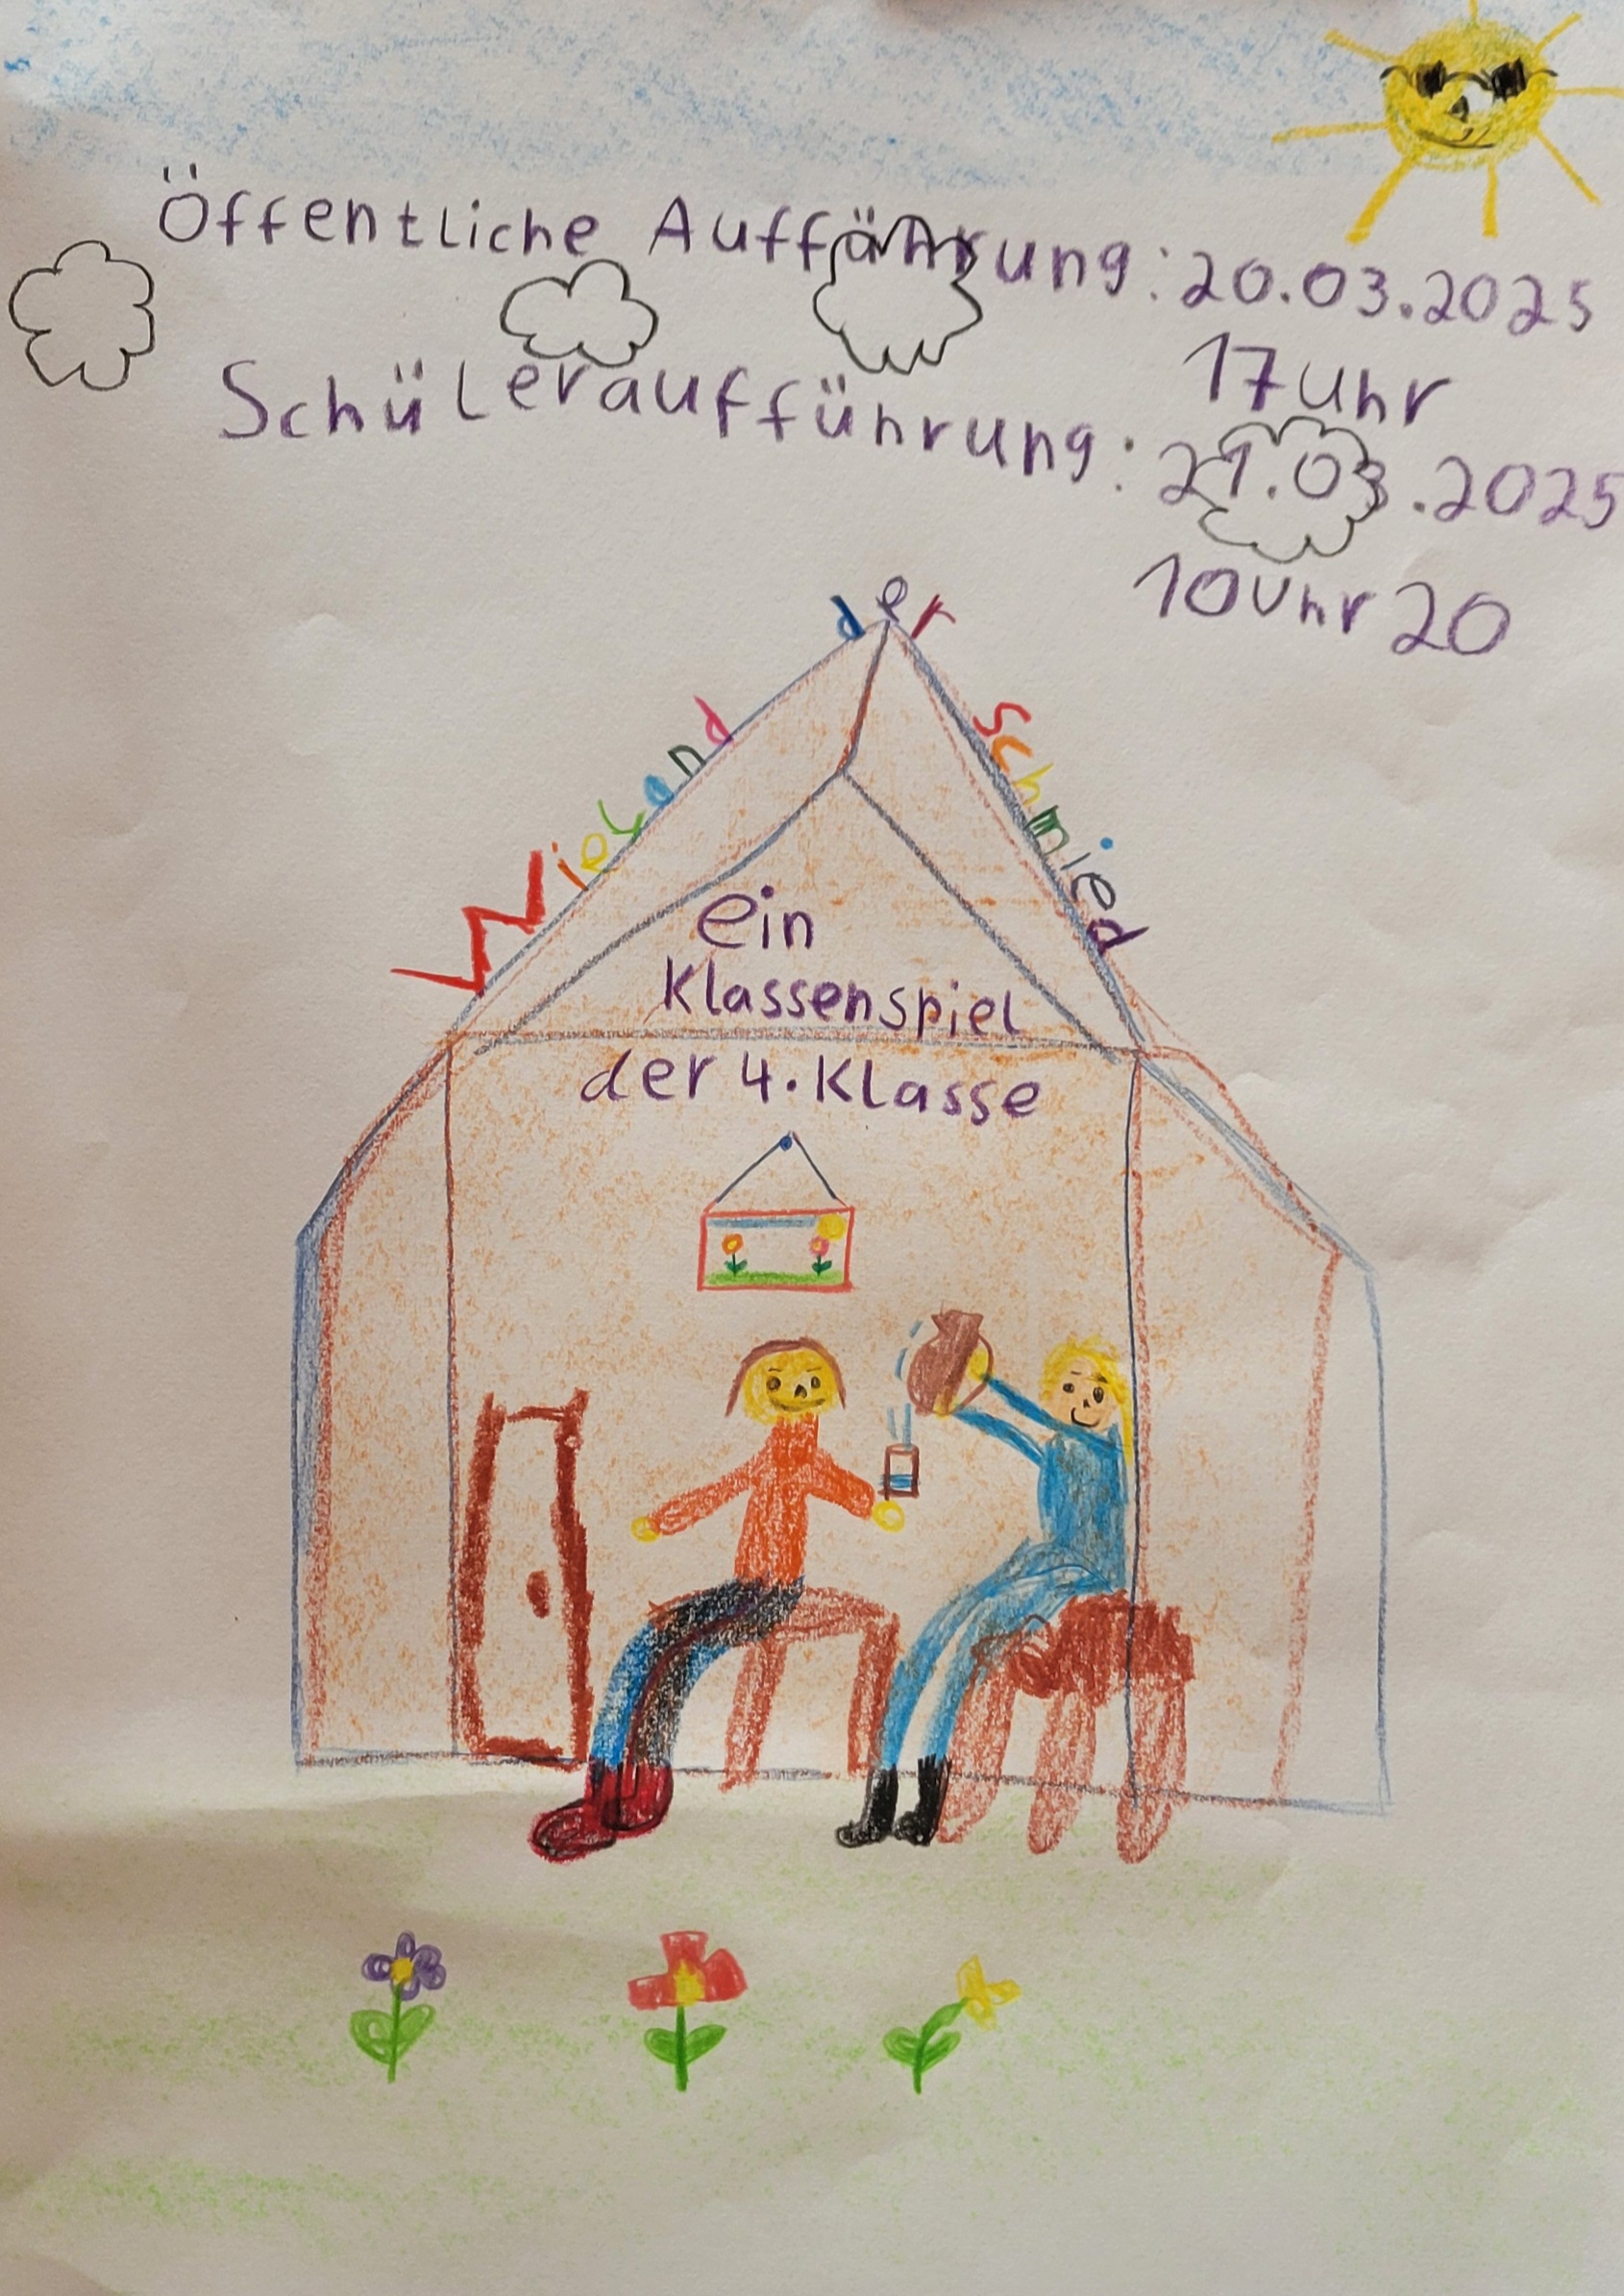 Öffentliche Auffährung: 20.03.2025
17 Uhr
Schüleraufführung: 21.03.2025
10 Uhr 20
Wieland der Schmied
ein
Klassenspiel
der 4. Klasse